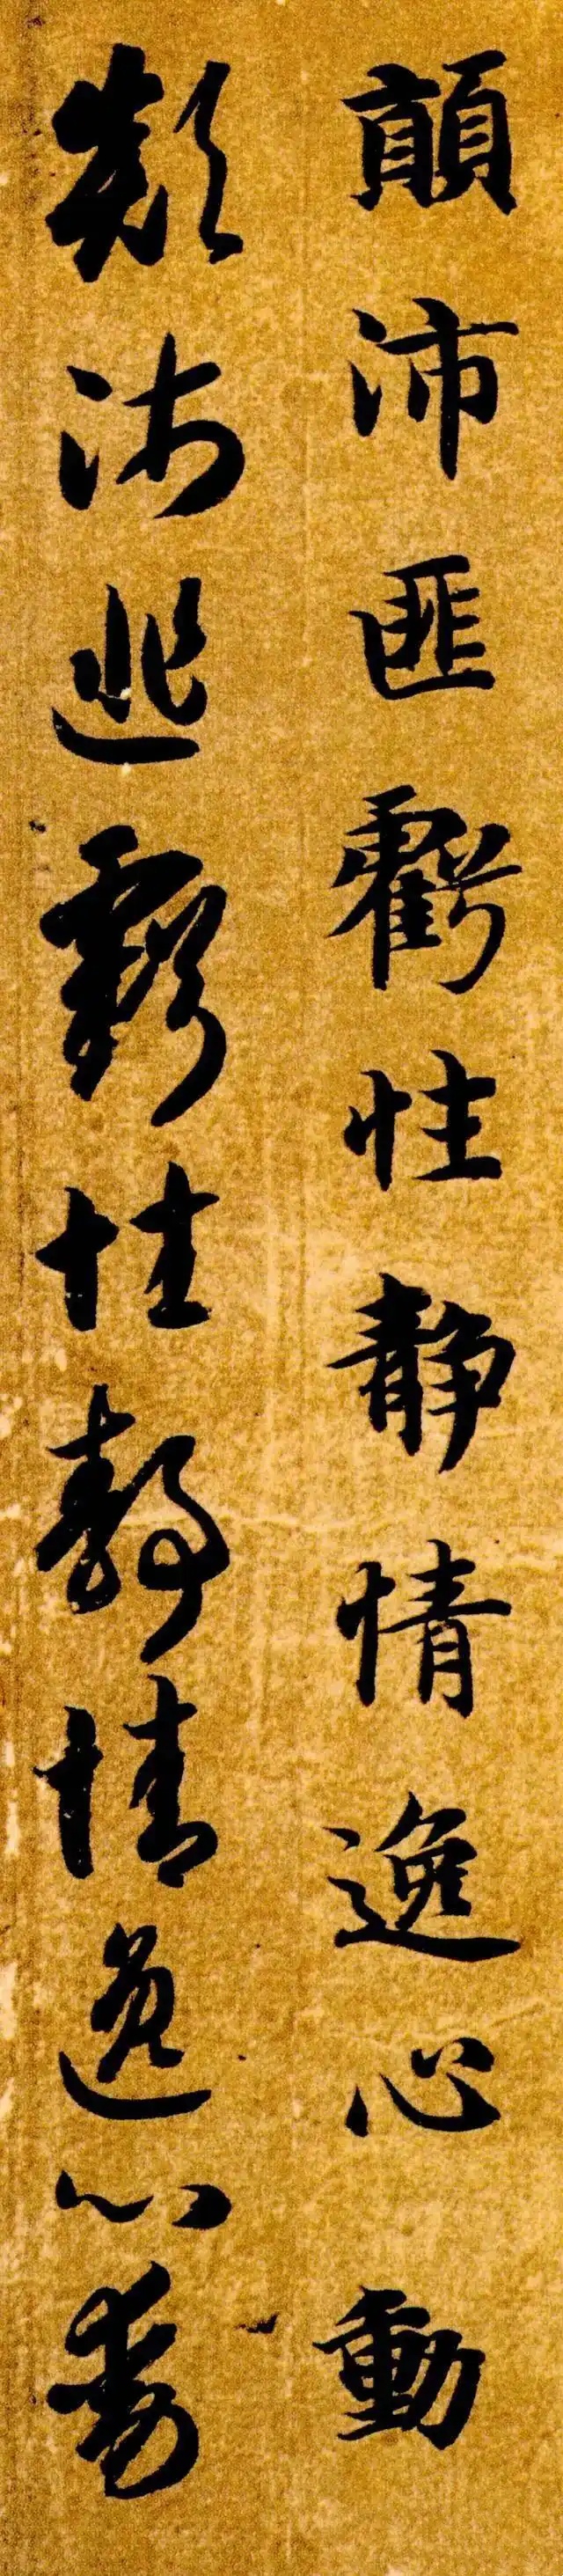 顛沛匪虧性靜情逸心動
顛沛匪虧性靜情逸心動